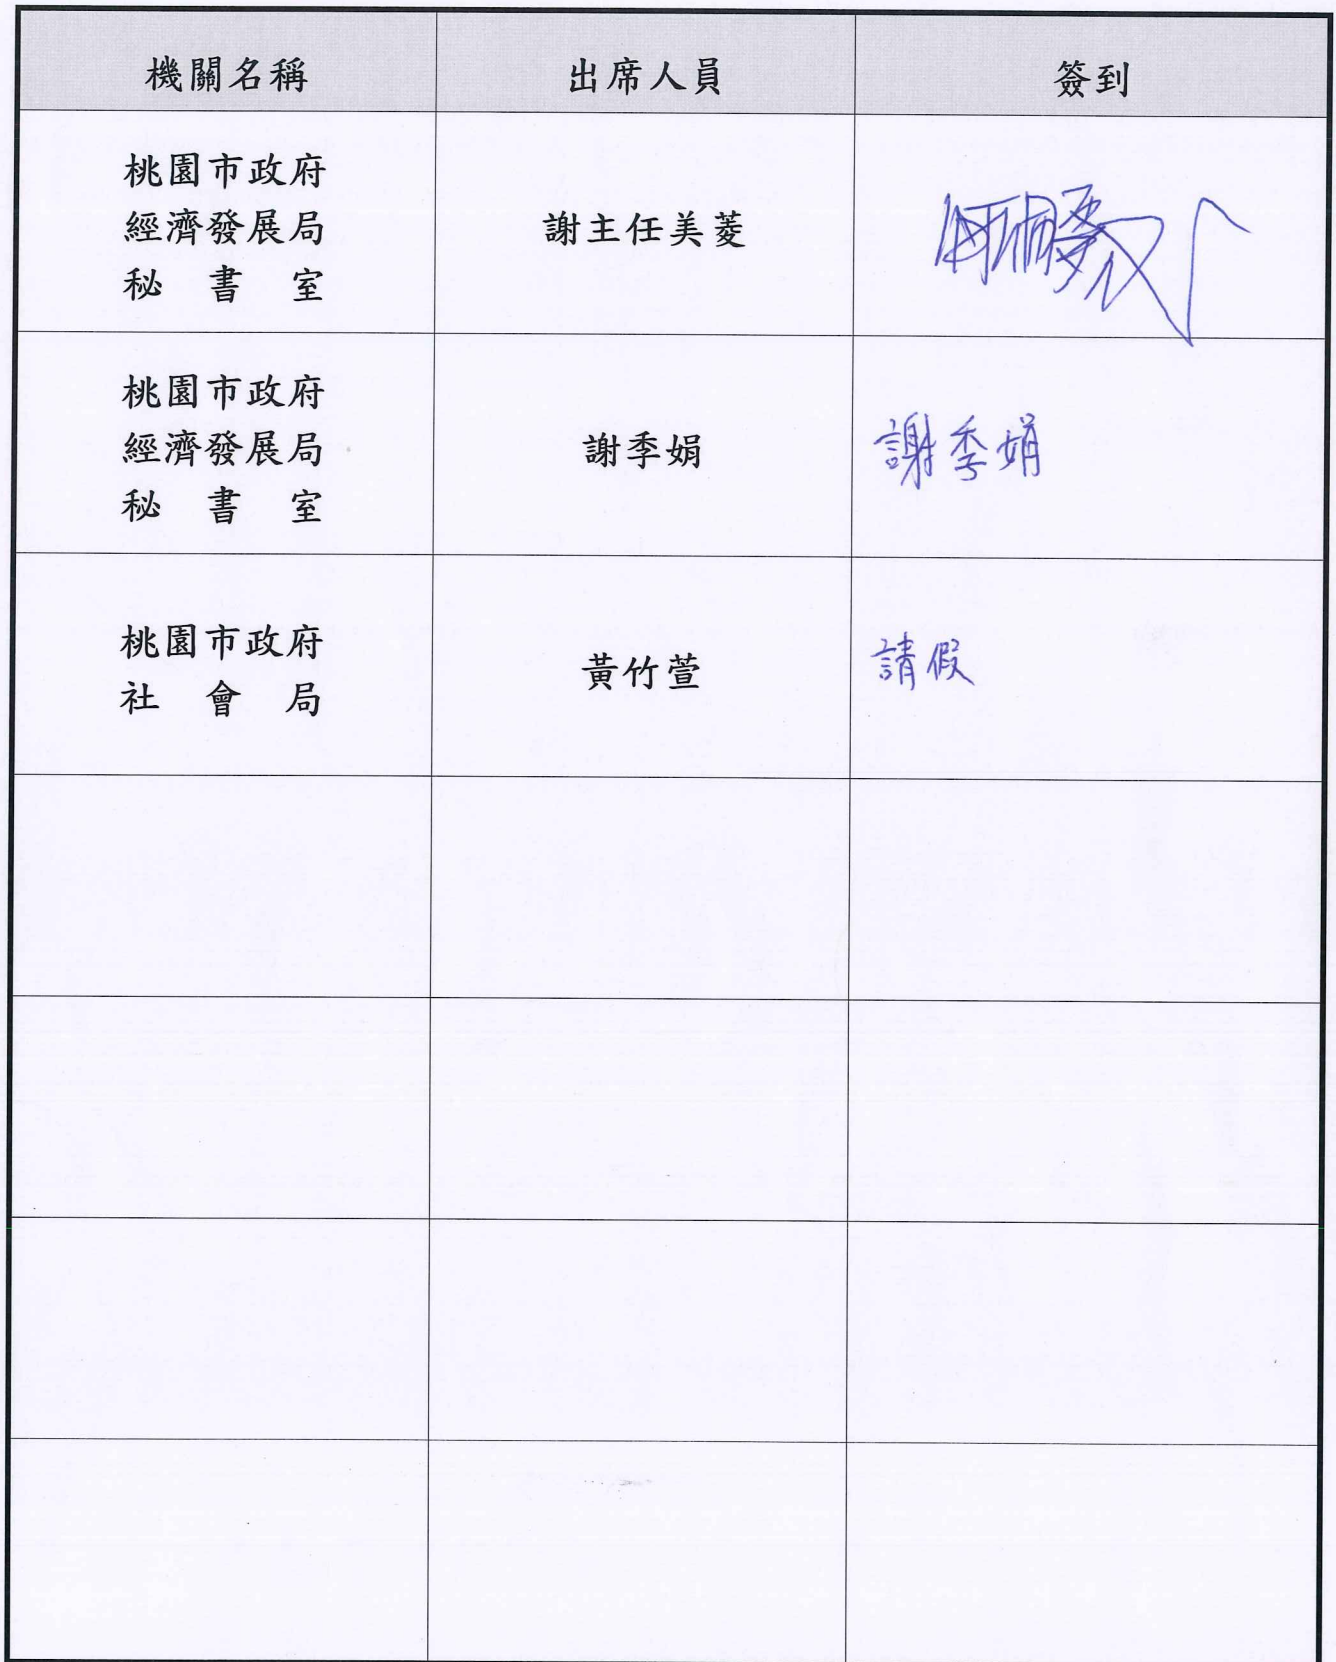 機關名稱 出席人員 簽到
桃園市政府
經濟發展局
秘書室
謝主任美菱
桃園市政府
經濟發展局
秘書室
謝季娟
謝季娟
桃園市政府
社會局
黃竹萱
請假